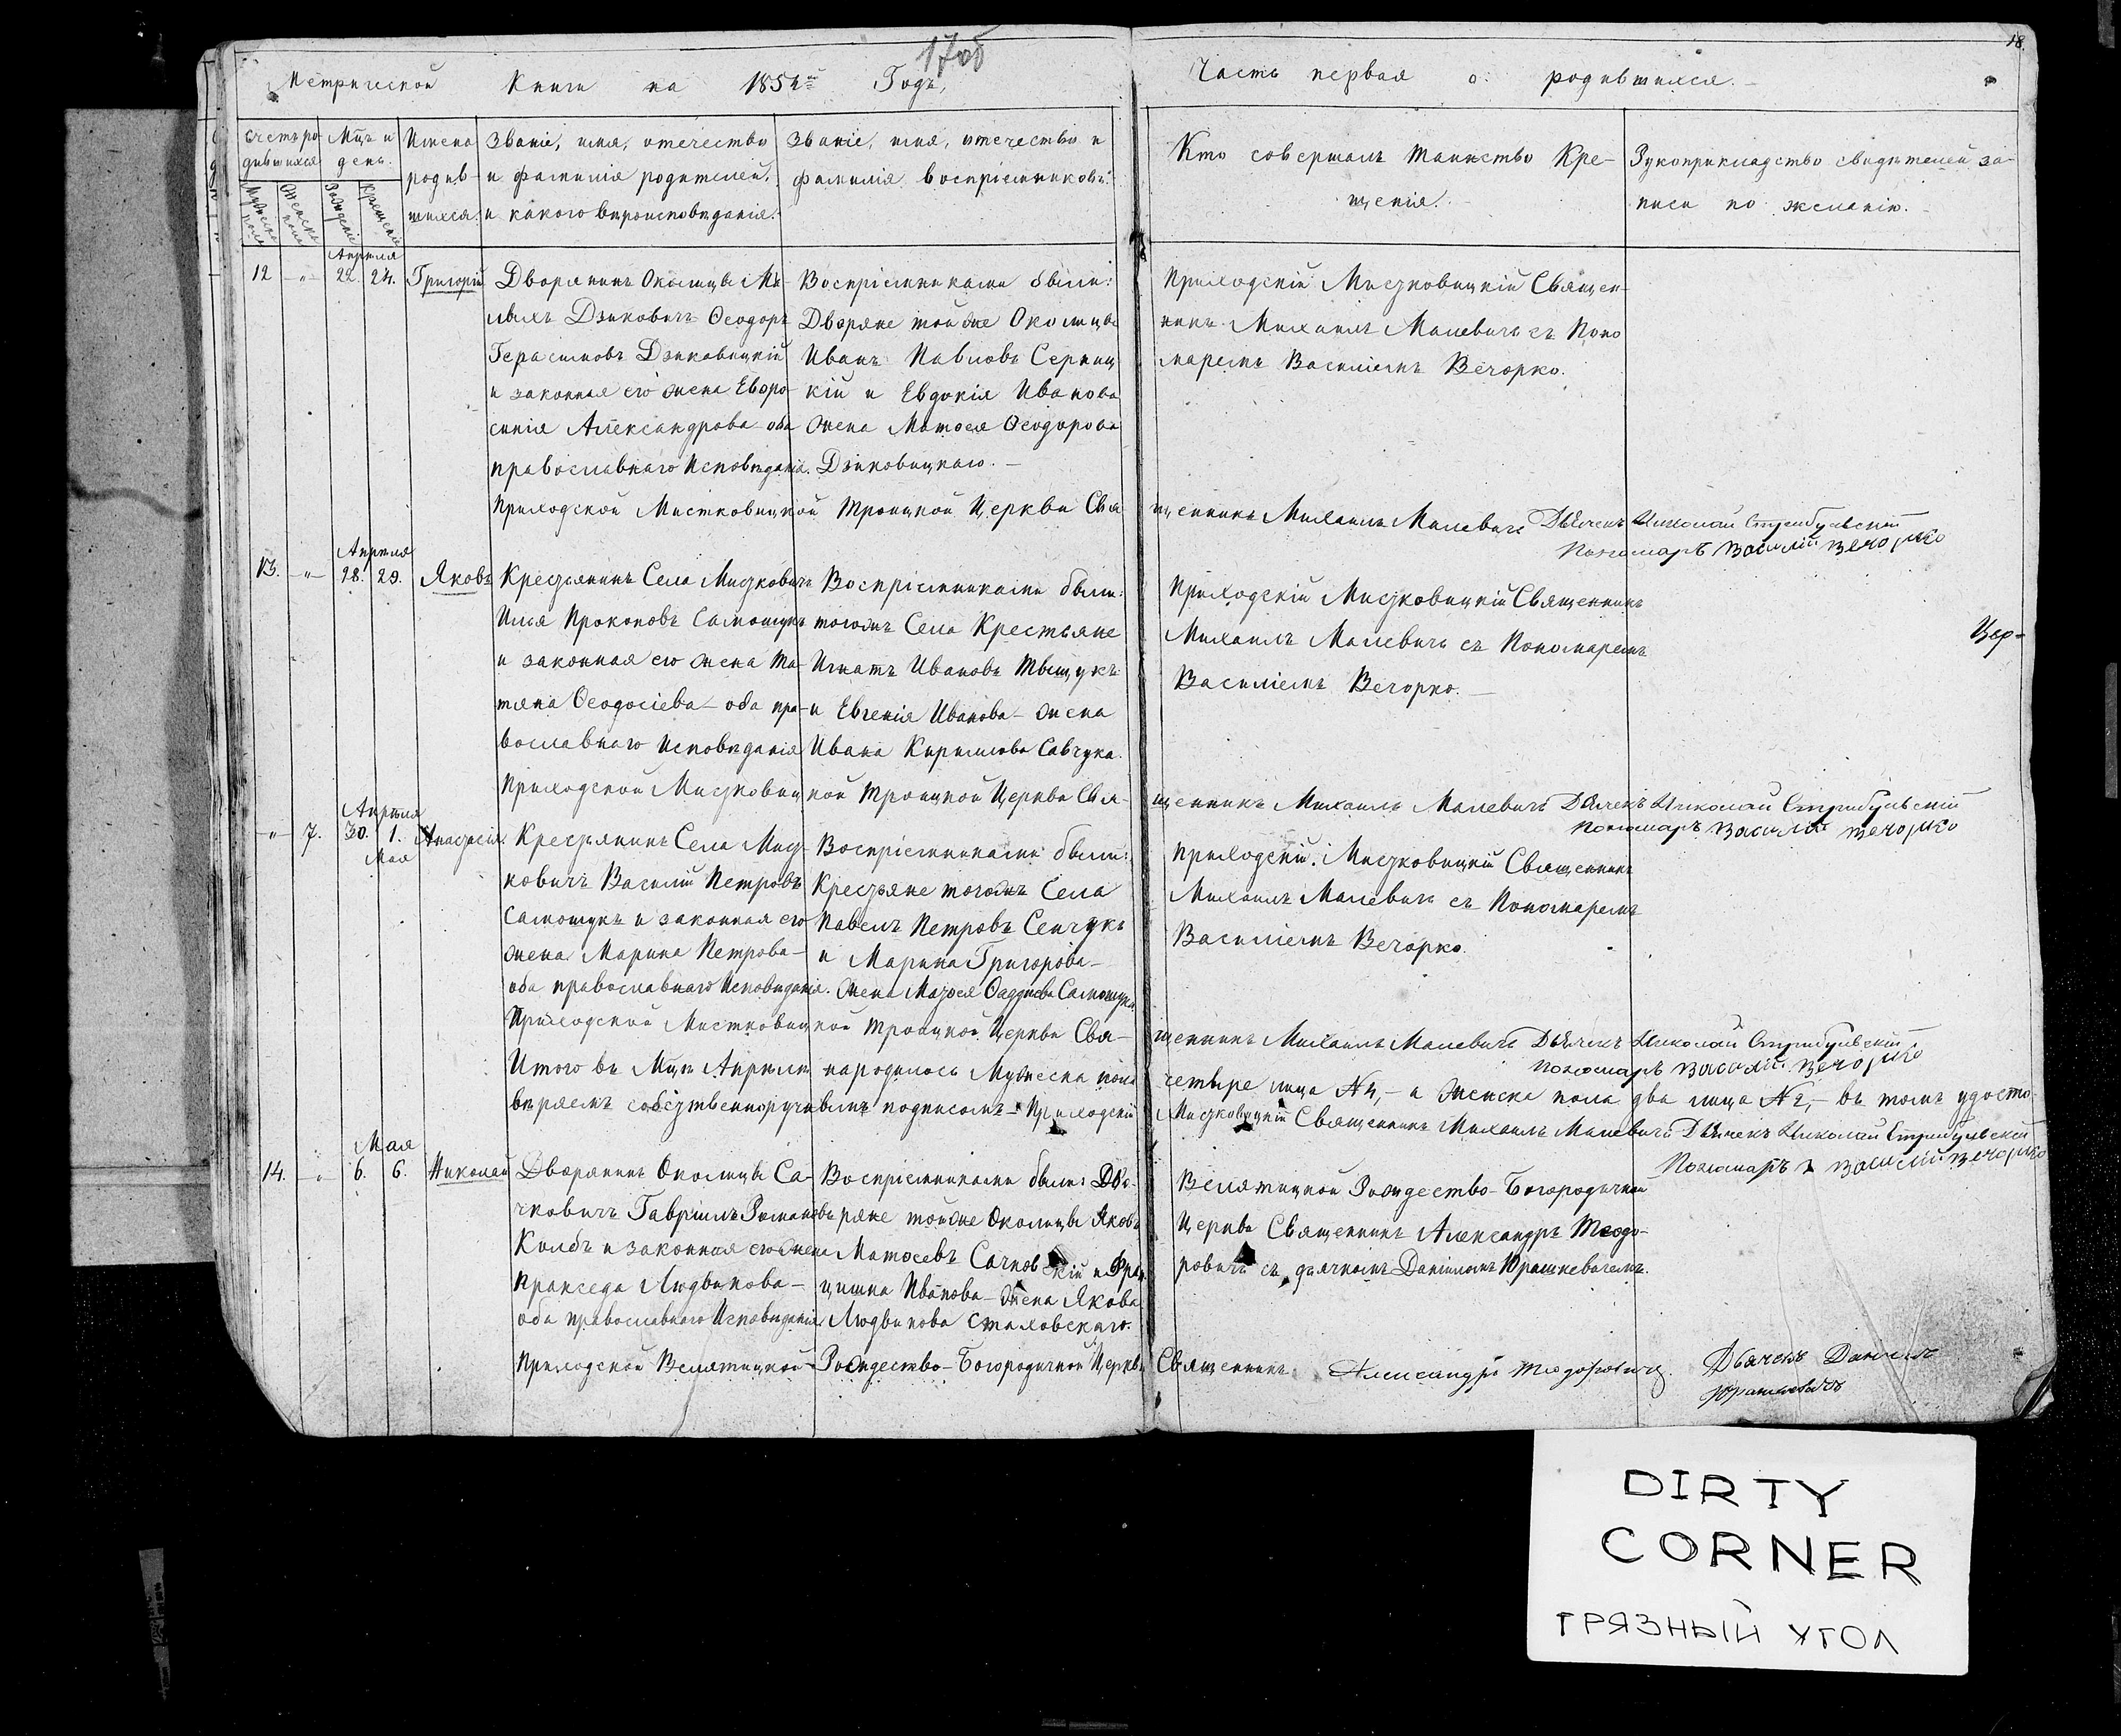 17об
18.
Метрической Книги на 1854й Годъ,
Часть первая о родившихся.
Счетъ ро-
дившихся
Мужеска
пола
Женска
пола
Мцъ и
день.
Рожденія
Крещенія
Имена
родив-
шихся.
Званіе, имя, отечество
и фамилія родителей,
и какого вѣроисповѣданія.
Званіе, имя, отечество и
фамилія воспріемниковъ.
Кто совершалъ таинство Кре-
щенія.
Рукоприкладство свидѣтелей за-
писи по желанію.
Апрѣля
12 -"- 22. 24. Григорій
Дворянинъ Околицы
Дзиковичъ Ѳеодоръ
Герасимовъ Дзиковицкій
и законная его жена Евфро-
синія Александрова оба
православнаго Исповѣданія.
Воспріемниками были:
Дворяне той же Околицы
Иванъ Павловъ Серниц
кій и Евдокія Иванова
жена Матѳея Ѳеодорова
Дзиковицкаго. —
Приходскій Мистковицкій Священ-
никъ Михаилъ Малевичъ съ Поно
маремъ Василіемъ Вечорко.
Приходской Мистковицкой Троицкой Церкви Свя
щенникъ Михаилъ Малевичъ Дьячекъ Николай
Пономаръ Василій Вечорко
Апрѣля
13. -"- 28. 29. Яковъ
Крестьянинъ Села Мистковичъ
Илья Прокоповъ Самошукъ
и законная его жена Та-
тяна Ѳеодосіева - оба пра-
вославнаго Исповѣданія
Воспріемниками были:
тогожъ Села Крестьяне
Игнатъ Ивановъ
и Евгенія Иванова - жена
Ивана Кирилова Савчука.
Приходскій Мистковицкій Священникъ
Михаилъ Малевичъ съ Пономаремъ
Василіемъ Вечорко. —
Цер-
Приходской Мистковицкой Троицкой Церкви Свя-
щенникъ Михаилъ Малевичъ Дьячекъ Николай
Пономаръ Василій Вечорко
Апрѣля
-"- 7. 30. 1. Анастасія.
Мая
Крестьянинъ Села Мист-
ковичъ Василій Петровъ
Самошукъ и законная его
жена Марина Петрова -
оба православнаго Исповѣданія.
Воспріемниками были:
Крестьяне тогожъ Села
Павелъ Петровъ Сенчукъ
и Марина Григорова -
жена Матѳея Ѳаддѣева Самошука.
Приходскій Мистковицкій Священникъ
Михаилъ Малевичъ съ Пономаремъ
Василіемъ Вечорко.
Приходской Мистковицкой Троицкой Церкви Свя-
щенникъ Михаилъ Малевичъ Дьячекъ Николай
Пономаръ Василій Вечорко
Итого въ Мцѣ Апрѣлѣ народилось Мужеска пола
четыре лица №4, - а Женска пола два лица №2, - въ томъ удосто-
вѣряемъ собственноручнымъ подписомъ - Приходскій
Мистковицкій Священникъ Михаилъ Малевичъ Дьячекъ Николай
Пономаръ Василій Вечорко
Мая
14. -"- 6. 6. Николай
Дворянинъ Околицы Са-
чковичъ Гавріилъ Романовъ
Колбъ и законная его жена
Пракседа Людвикова -
оба православнаго Исповѣданія.
Воспріемниками были: Дво-
ряне той же Околицы Яковъ
Матѳеевъ Сачковскій и Фран
цишка Иванова - жена Якова
Людвикова Стаховскаго.
Велятицкой Рождество-Богородичной
Церкви Священникъ Александръ Теодо-
ровичъ съ дьячкомъ Даніиломъ Юрашкевичемъ.
Приходской Велятицкой Рождество-Богородичной Церкви
Священникъ Александръ Теодоровичъ. Дьячекъ Даніилъ
Юрашкевичъ
DIRTY
CORNER
ГРЯЗНЫЙ УГОЛ